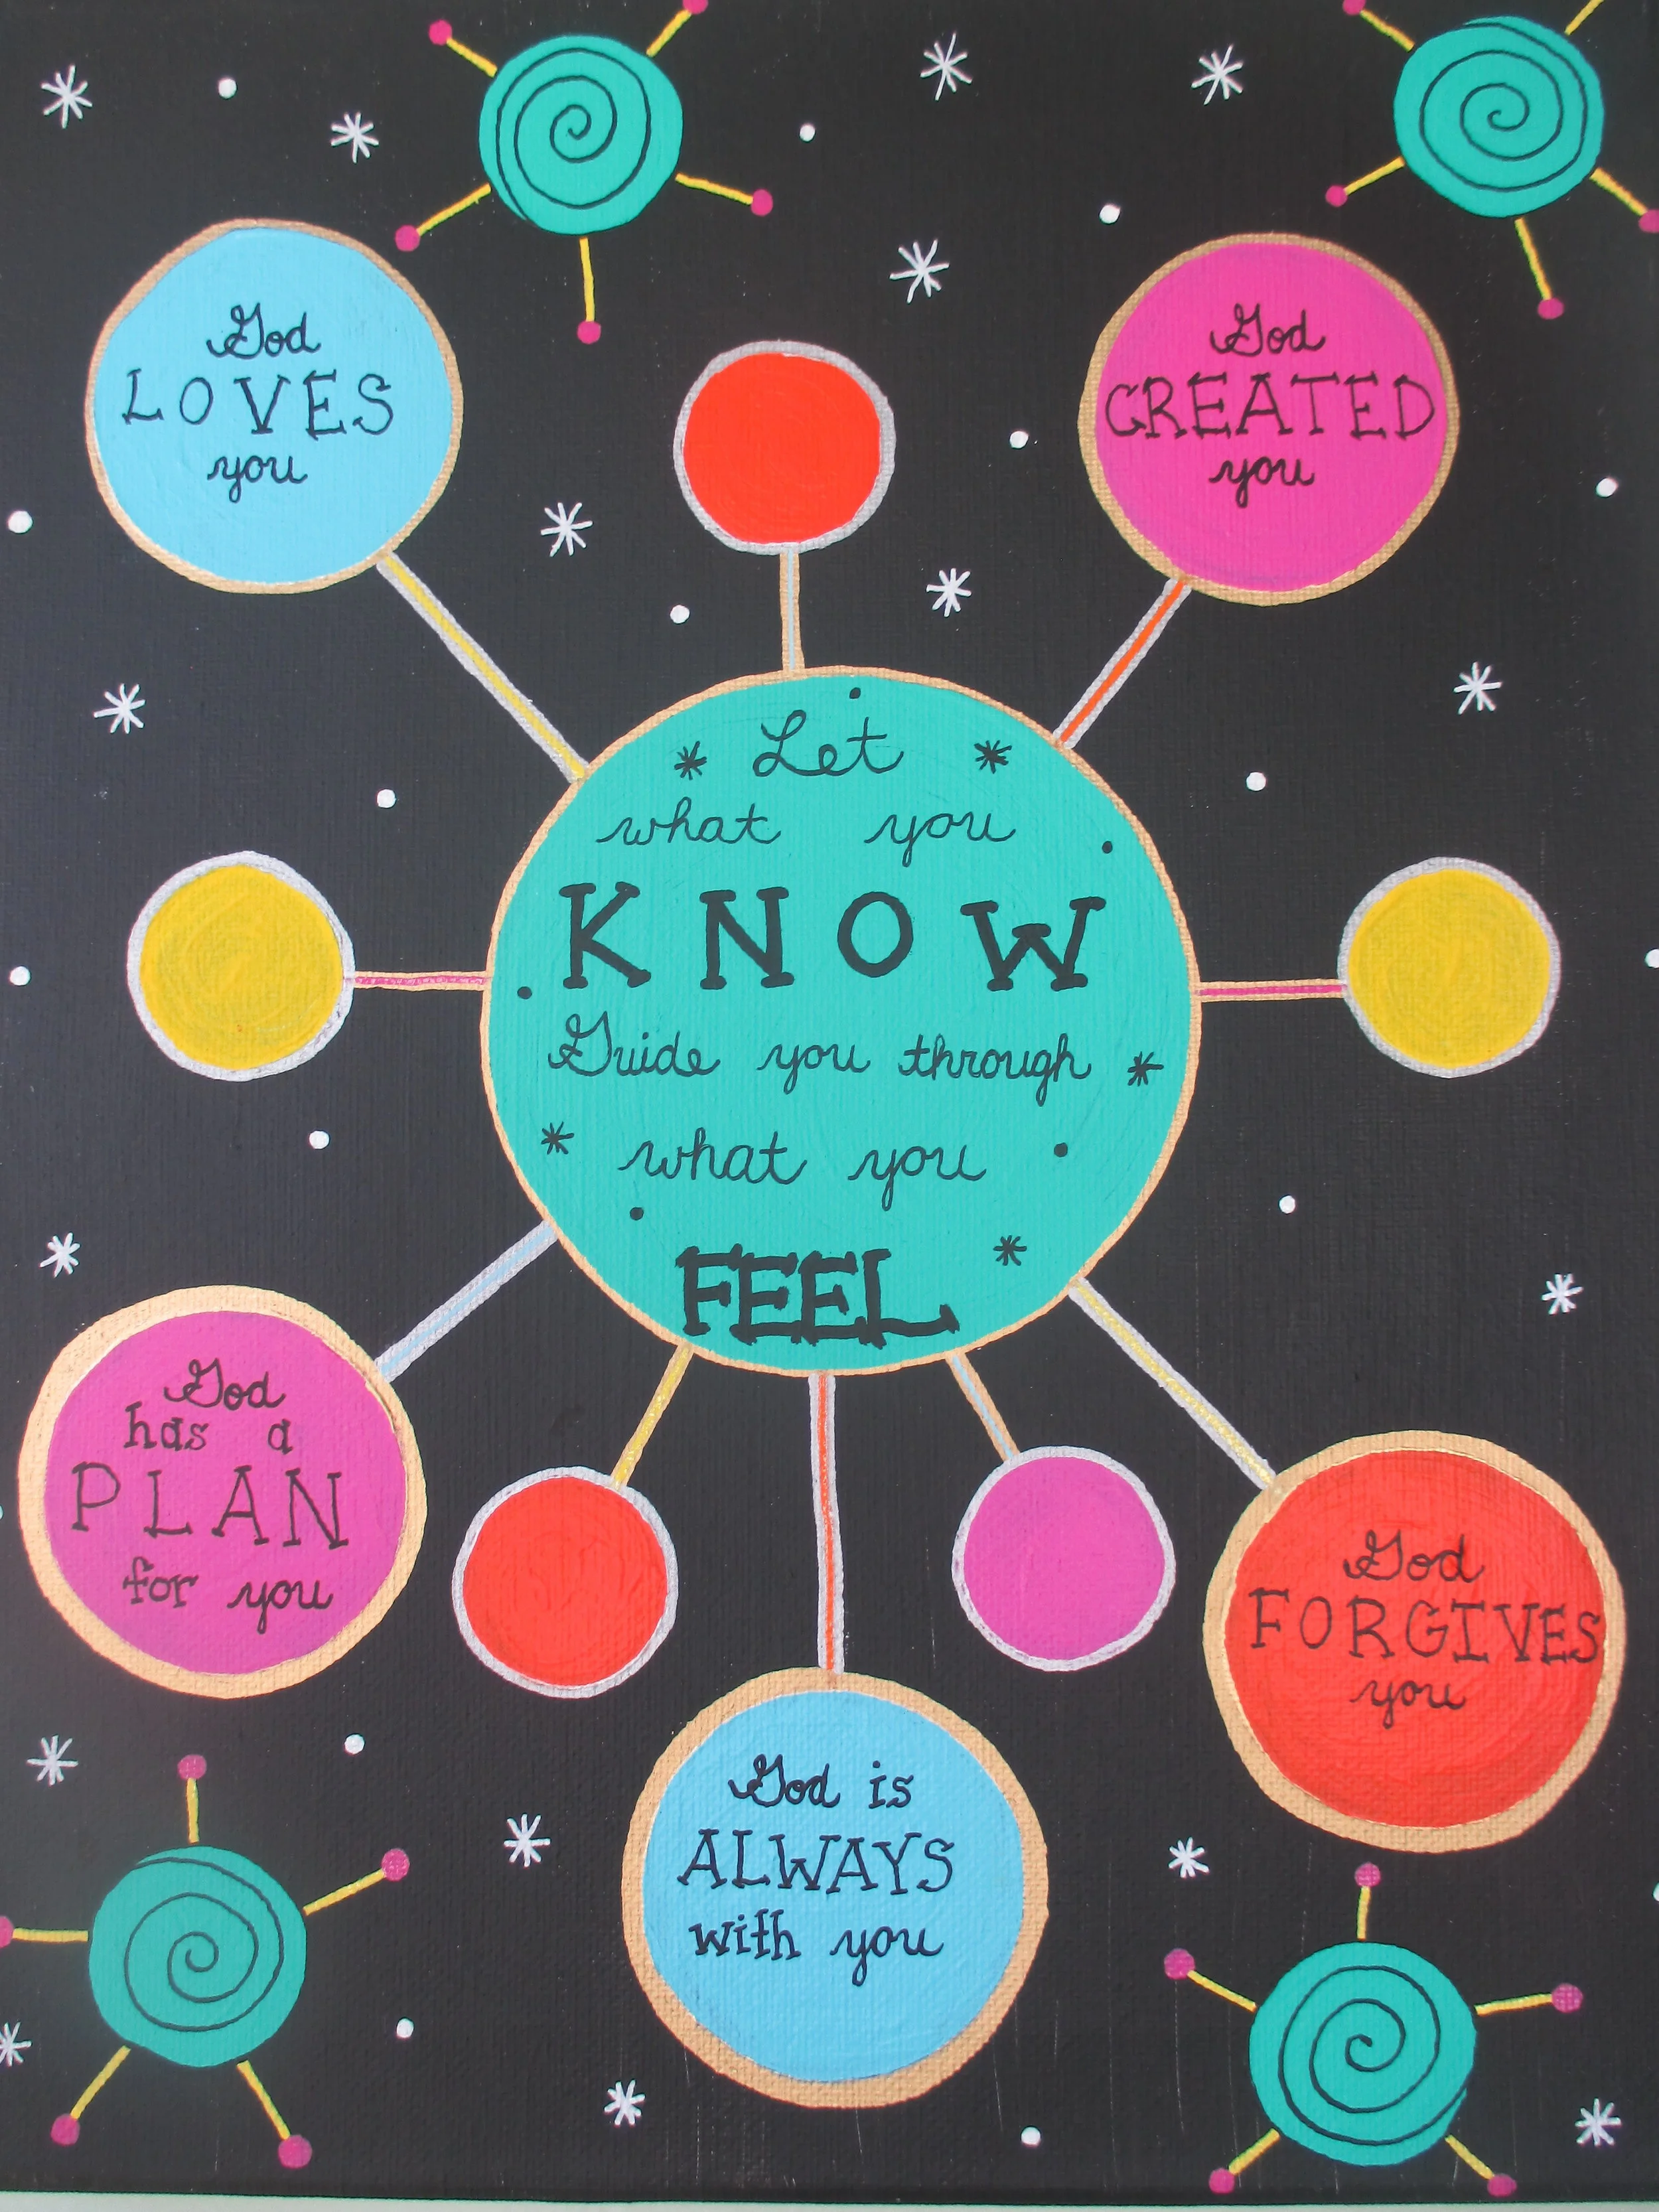 God
LOVES
you
God
CREATED
you
Let
what you
KNOW
Guide you through
what you
FEEL
God
has a
PLAN
for you
God
FORGIVES
you
God is
ALWAYS
with you